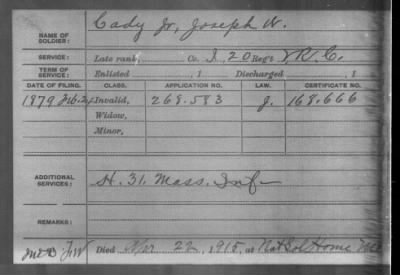 NAME OF SOLDIER: Cady Jr, Joseph W.
SERVICE: Late rank, Co. I, 20 Reg't V.R.C.
TERM OF SERVICE: Enlisted , 1 Discharged , 1
DATE OF FILING. CLASS. APPLICATION NO. LAW. CERTIFICATE NO.
1879 Feb. Invalid, 268.583 J. 168.666
Widow,
Minor,
ADDITIONAL SERVICES: H. 31. Mass. Inf
REMARKS:
Died Apr 22, 1915, at Nat'l Sol Home Me